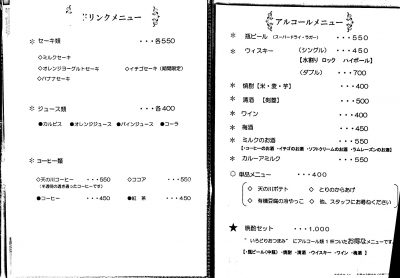 ドリンクメニュー
＊ セーキ類 ・・・各550
◇ミルクセーキ
◇オレンジヨーグルトセーキ ◇イチゴセーキ（期間限定）
◇バナナセーキ
＊ ジュース類 ・・・各400
●カルピス ●オレンジジュース ●パインジュース ●コーラ
＊ コーヒー類
◇天の川コーヒー ・・・550 ◇ココア ・・・550
●コーヒー ・・・450 ●紅 茶 ・・・450
アルコールメニュー
＊ 瓶ビール （スーパードライ・ラガー） ・・・550
＊ ウィスキー （シングル） ・・・450
【水割り ロック ハイボール】
（ダブル） ・・・700
＊ 焼酎【米・麦・芋】 ・・・400
＊ 清酒 ・・・500
＊ ワイン ・・・400
＊ 梅酒 ・・・450
＊ ミルクのお酒 ・・・550
【・コーヒーのお酒 ・イチゴのお酒 ・ソフトクリームのお酒 ・ラムレーズンのお酒】
＊ カルーアミルク ・・・550
○ 単品メニュー ・・・400
◇ 天の川ポテト ◇ とりのからあげ
◇ 有機豆腐の冷やっこ ◇ 他、スタッフにお尋ねください
★ 晩酌セット ・・・1.000
"いろどりおつまみ" にアルコール類 1杯ついたお得なメニューです
・瓶ビール（中瓶） ・焼酎 ・清酒 ・ウイスキー ・ワイン ・梅酒